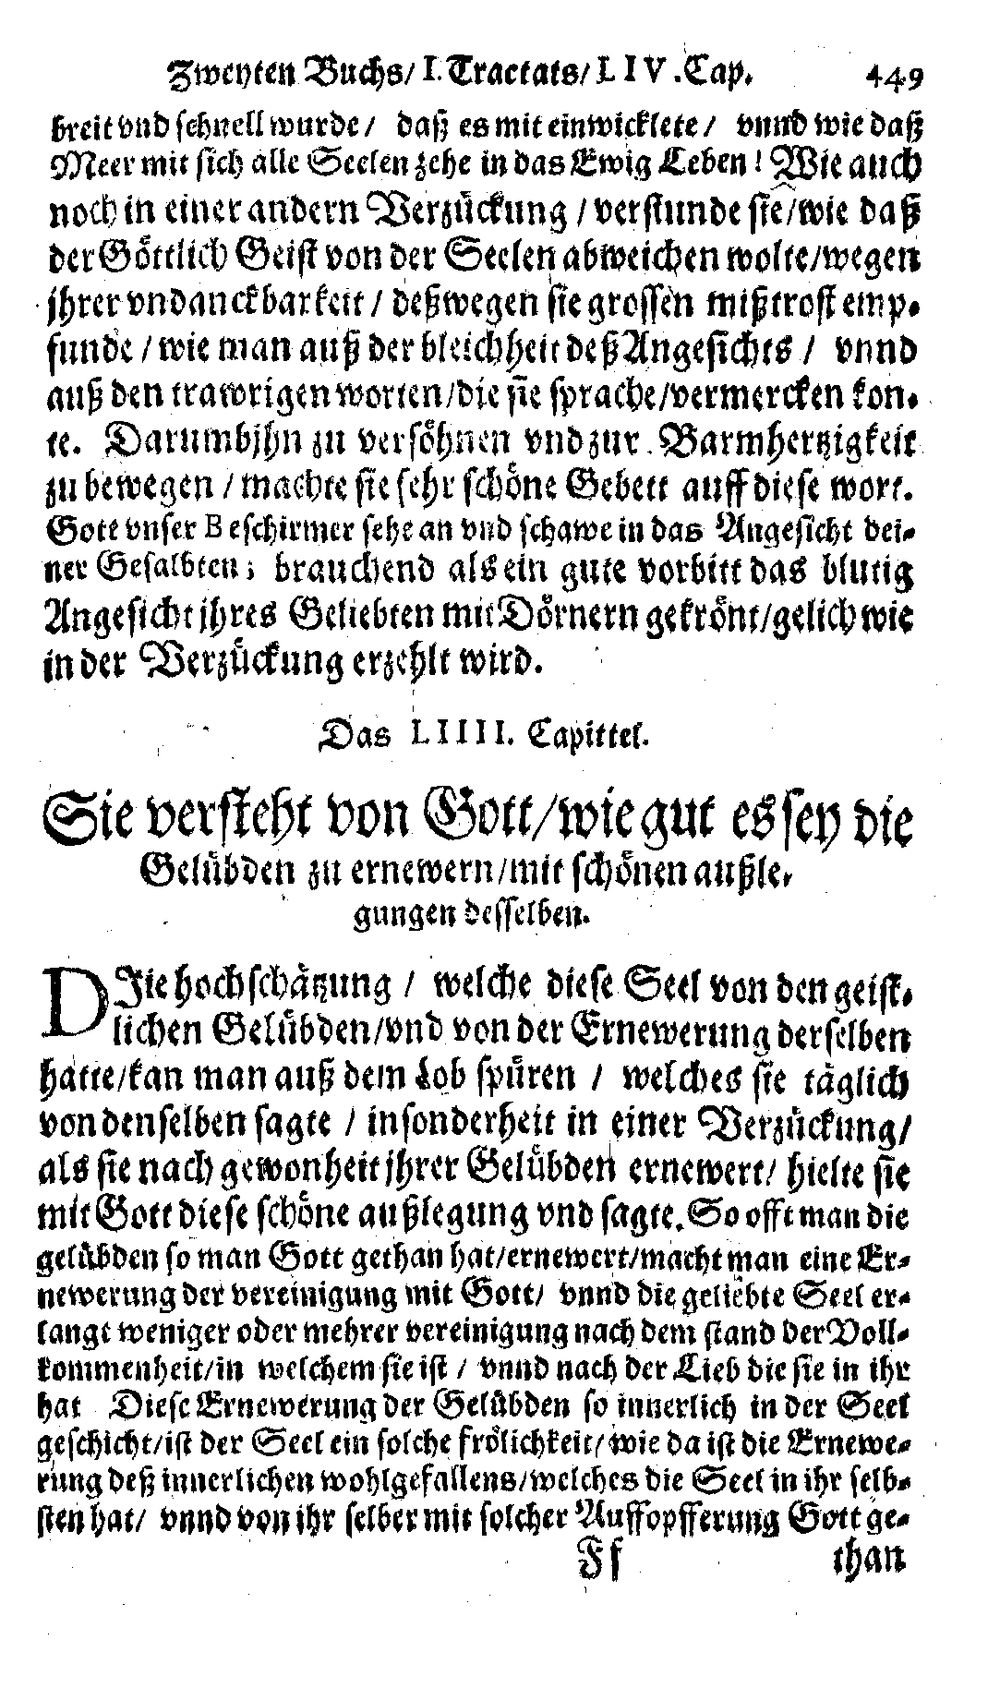 Zweyten Buchs/ I. Tractats/ LIV. Cap. 449
breit vnd schnell wurde/ daß es mit einwicklete/ vnnd wie daß
Meer mit sich alle Seelen zehe in das Ewig Leben! Wie auch
noch in einer andern Verzückung / verstunde sie/wie daß
der Göttlich Geist von der Seelen abweichen wolte/wegen
jhrer vndanckbarkeit / deßwegen sie grossen mißtrost emp-
funde / wie man auß der bleichheit deß Angesichts / vnnd
auß den trawrigen worten/die sie sprache/vermercken kon-
te. Darumb jhn zu versöhnen vnd zur Barmhertzigkeit
zu bewegen / machte sie sehr schöne Gebett auff diese wort.
Gott vnser Beschirmer sehe an vnd schawe in das Angesicht dei-
ner Gesalbten; brauchend als ein gute vorbitt das blutig
Angesicht jhres Geliebten mit Dörnern gekrönt/gelich wie
in der Verzückung erzehlt wird.
Das LIIII. Capittel.
Sie versteht von Gott/wie gut es sey die
Gelübden zu ernewern/mit schönen außle-
gungen desselben.
DJie hochschätzung / welche diese Seel von den geist-
lichen Gelübden/vnd von der Ernewerung derselben
hatte/kan man auß dem Lob spüren / welches sie täglich
von denselben sagte / insonderheit in einer Verzückung/
als sie nach gewonheit jhrer Gelübden ernewert/ hielte sie
mit Gott diese schöne außlegung vnd sagte. So offt man die
gelübden so man Gott gethan hat/ernewert/macht man eine Er-
newerung der vereinigung mit Gott/ vnnd die geliebte Seel er-
langt weniger oder mehrer vereinigung nach dem stand der Voll-
kommenheit/in welchem sie ist / vnnd nach der Lieb die sie in ihr
hat Diese Ernewerung der Gelübden so innerlich in der Seel
geschicht/ist der Seel ein solche frölichkeit/wie da ist die Ernewe-
rung deß innerlichen wohlgefallens/welches die Seel in ihr selb-
sten hat/ vnnd von ihr selber mit solcher Auffopfferung Gott ge-
Ff than